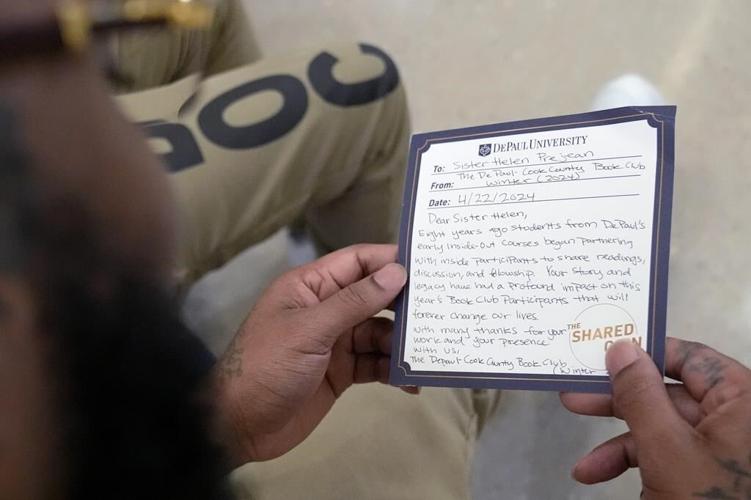 DOC
DEPAUL UNIVERSITY
To: Sister Helen Prejean
The DePaul-Cook County Book Club
From: Winter (2024)
Date: 4/22/2024
Dear Sister Helen,
Eight years ago students from DePaul's
early Inside-Out courses began partnering
with inside participants to share readings,
discussion, and fellowship. Your story and
legacy have had a profound impact on this
year's Book Club Participants that will
forever change our lives.
With many thanks for your
work and your presence
with us,
The Depaul Cook County Book Club
(Winter
THE
SHARED